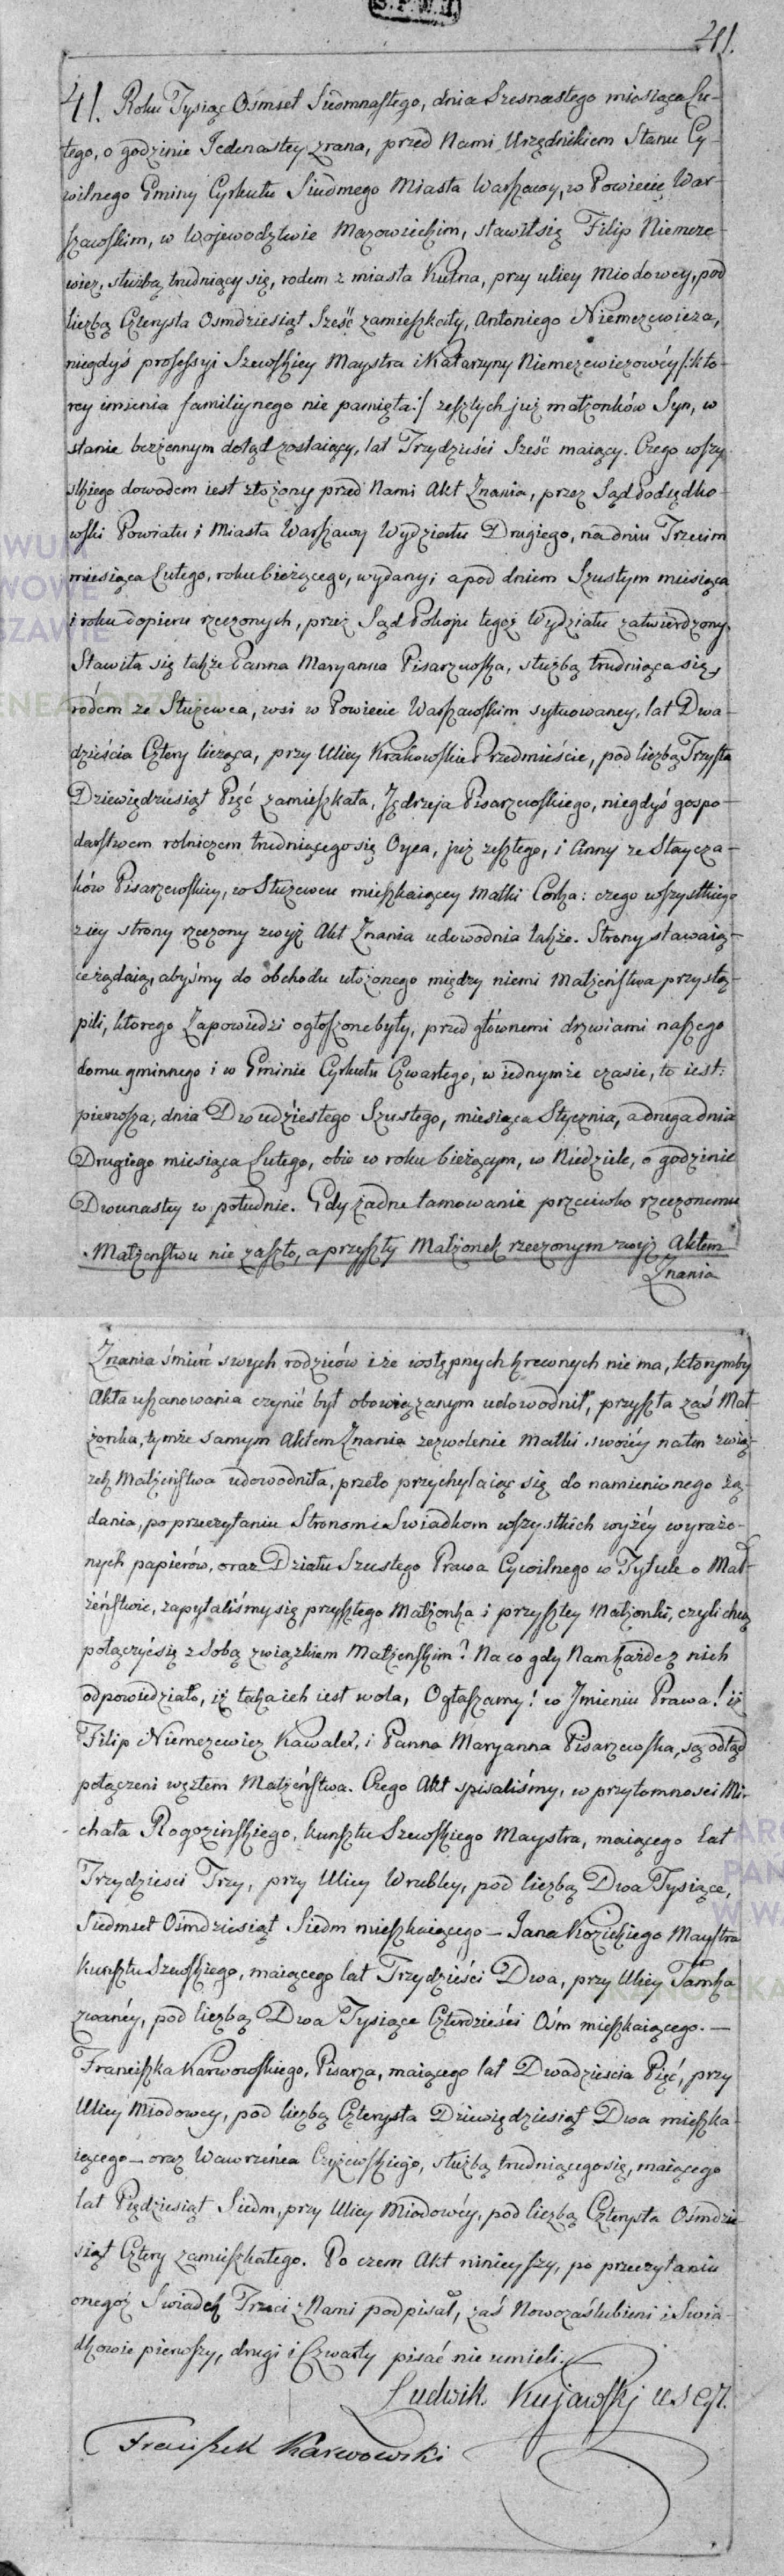 S.P.W.II.
41.
41. Roku Tysiąc Ośmset Siedmnastego, dnia Szesnastego miesiąca Lu-
tego, o godzinie Jedenastey zrana, przed Nami Urzędnikiem Stanu Cy-
wilnego Gminy Cyrkułu Siudmego Miasta Warszawy, w Powiecie War-
szawskim, w Wojewodztwie Mazowieckim, stawił się Filip Niemcze-
wicz, służbą trudniący się, rodem z miasta Kutna, przy ulicy Miodowey, pod
liczbą Czterysta Osmdziesiąt Sześć zamieszkały, Antoniego Niemczewicza,
niegdyś professyi Szewskiey Maystra i Katarzyny Niemczewiczowéy /: kto-
rey imienia familiynego nie pamięta :/ zeszłych już małżonków Syn, w
stanie bezżennym dotąd zostaiący, lat Trzydzieści Sześć maiący. Czego wszy-
stkiego dowodem iest złożony przed Nami Akt Znania, przez Sąd Podsędko-
wski Powiatu i Miasta Warszawy Wydziału Drugiego, na dniu Trzecim
miesiąca Lutego, roku bieżącego, wydany; a pod dniem Szustym miesiąca
i roku dopieru rzeczonych, przez Sąd Pokoju tegoż Wydziału zatwierdzony.
Stawiła się także Panna Maryanna Pisarzewska, służbą trudniąca się,
rodem ze Służewca, wsi w Powiecie Warszawskim sytuowaney, lat Dwa-
dzieścia Cztery licząca, przy Ulicy Krakowskie Przedmieście, pod liczbą Trzysta
Dziewięćdziesiąt Pięć zamieszkała, Jędrzeja Pisarzewskiego, niegdyś gospo-
darstwem rolniczem trudniącego się Oyca, już zeszłego, i Anny ze Staycza-
ków Pisarzewskiey, w Służewcu mieszkaiącey Matki Corka: czego wszystkiego
z iey strony rzeczony zwyż Akt Znania udowodnia także. Strony stawaią-
ce żądaią, abyśmy do obchodu ułożonego między niemi Małżeństwa przystą-
pili, ktorego Zapowiedzi ogłoszone były, przed głównemi drzwiami naszego
domu gminnego i w Gminie Cyrkułu Czwartego, w iednymże czasie, to iest:
pierwsza, dnia Dwudziestego Szustego, miesiąca Stycznia, a druga dnia
Drugiego miesiąca Lutego, obie w roku bieżącym, w Niedziele, o godzinie
Dwunastey w południe. Gdy żadne tamowanie przeciwko rzeczonemu
Małżeństwu nie zaszło, a przyszły Małżonek rzeczonym zwyż Aktem
Znania
Znania śmierć swych rodziców i że wstępnych krewnych nie ma, ktorymby
Akta uszanowania czynić był obowiązanym udowodnił, przyszła zaś Mał-
żonka, tymże samym Aktem Znania zezwolenie Matki swoiéy na ten zwią-
zek Małżeństwa udowodniła, przeto przychylaiąc się do namienionego żą-
dania, po przeczytaniu Stronom i Swiadkom wszystkich wyżéy wyrażo-
nych papierów, oraz Działu Szustego Prawa Cywilnego w Tytule o Mał-
żeństwie, zapytaliśmy się przyszłego Małżonka i przyszłey Małżonki, czyli chcą
połączyć się z sobą związkiem Małżenskim? Na co gdy Nam każde z nich
odpowiedziało, iż taka ich iest wola, Ogłaszamy! w Jmieniu Prawa! iż
Filip Niemczewicz Kawaler, i Panna Maryanna Pisarzewska, są odtąd
połączeni węzłem Małżeństwa. Czego Akt spisaliśmy, w przytomnosci Mi-
chała Rogozinskiego, kunsztu Szewskiego Maystra, maiącego lat
Trzydziesci Trzy, przy Ulicy Wrubley, pod liczbą Dwa Tysiące,
Siedmset Ośmdziesiąt Siedm mieszkaiącego – Jana Kozickiego Maystra
kunsztu Szewskiego, maiącego lat Trzydzieści Dwa, przy Ulicy Tamka
zwanéy, pod liczbą Dwa Tysiące Czterdzieści Ośm mieszkaiącego. –
Franciszka Karwowskiego, Pisarza, maiącego lat Dwadziescia Pięć, przy
Ulicy Miodowey, pod liczbą Czterysta Dziewięćdziesiąt Dwa mieszka-
iącego – oraz Wawrzeńca Czyżewskiego, służbą trudniącego się, maiącego
lat Pięćdziesiąt Siedm, przy Ulicy Miodowéy, pod liczbą Czterysta Ośmdzie-
siąt Cztery zamieszkałego. Po czem Akt ninieyszy, po przeczytaniu
onegoż Swiadek Trzeci z Nami podpisał, zaś Nowozaślubieni i Swia-
dkowie pierwszy, drugi i Czwarty pisać nie umieli.
Ludwik Kujawski
Franciszek Karwowski